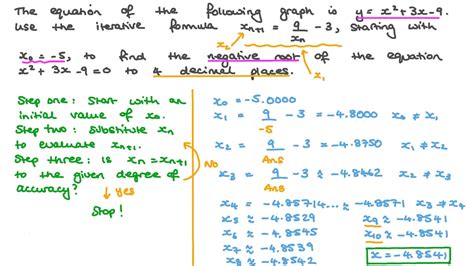 The equation of the following graph is y = x² + 3x - 9.
Use the iterative formula xₙ₊₁ = 9/xₙ - 3, starting with
x₀ = -5, to find the negative root of the equation
x² + 3x - 9 = 0 to 4 decimal places.
x₂
x₁
Step one: Start with an
initial value of x₀.
Step two: Substitute xₙ
to evaluate xₙ₊₁.
Step three: is xₙ = xₙ₊₁
to the given degree of
accuracy?
No
yes
Stop!
x₀ = -5.0000
x₁ = 9/-5 - 3 = -4.8000 x₀ ≠ x₁
x₂ = 9/Ans - 3 = -4.8750 x₁ ≠ x₂
x₃ = 9/Ans - 3 ≈ -4.8462 x₂ ≠ x₃
x₄ = -4.85714... ≈ -4.8571 x₃ ≠ x₄
x₅ ≈ -4.8529
x₆ ≈ -4.8545
x₇ ≈ -4.8539
x₈ ≈ -4.8542
x₉ ≈ -4.8541
x₁₀ ≈ -4.8541
x = -4.8541